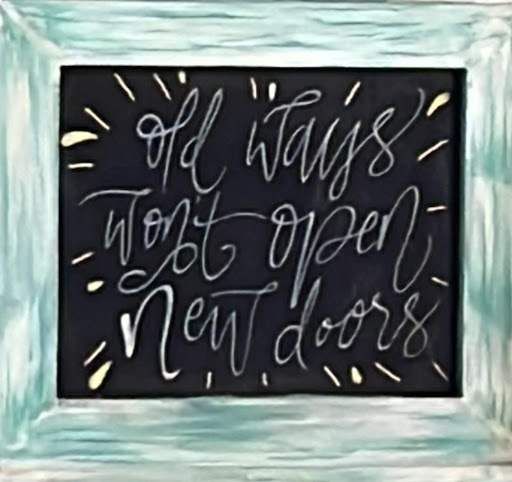 old ways
won't open
new doors